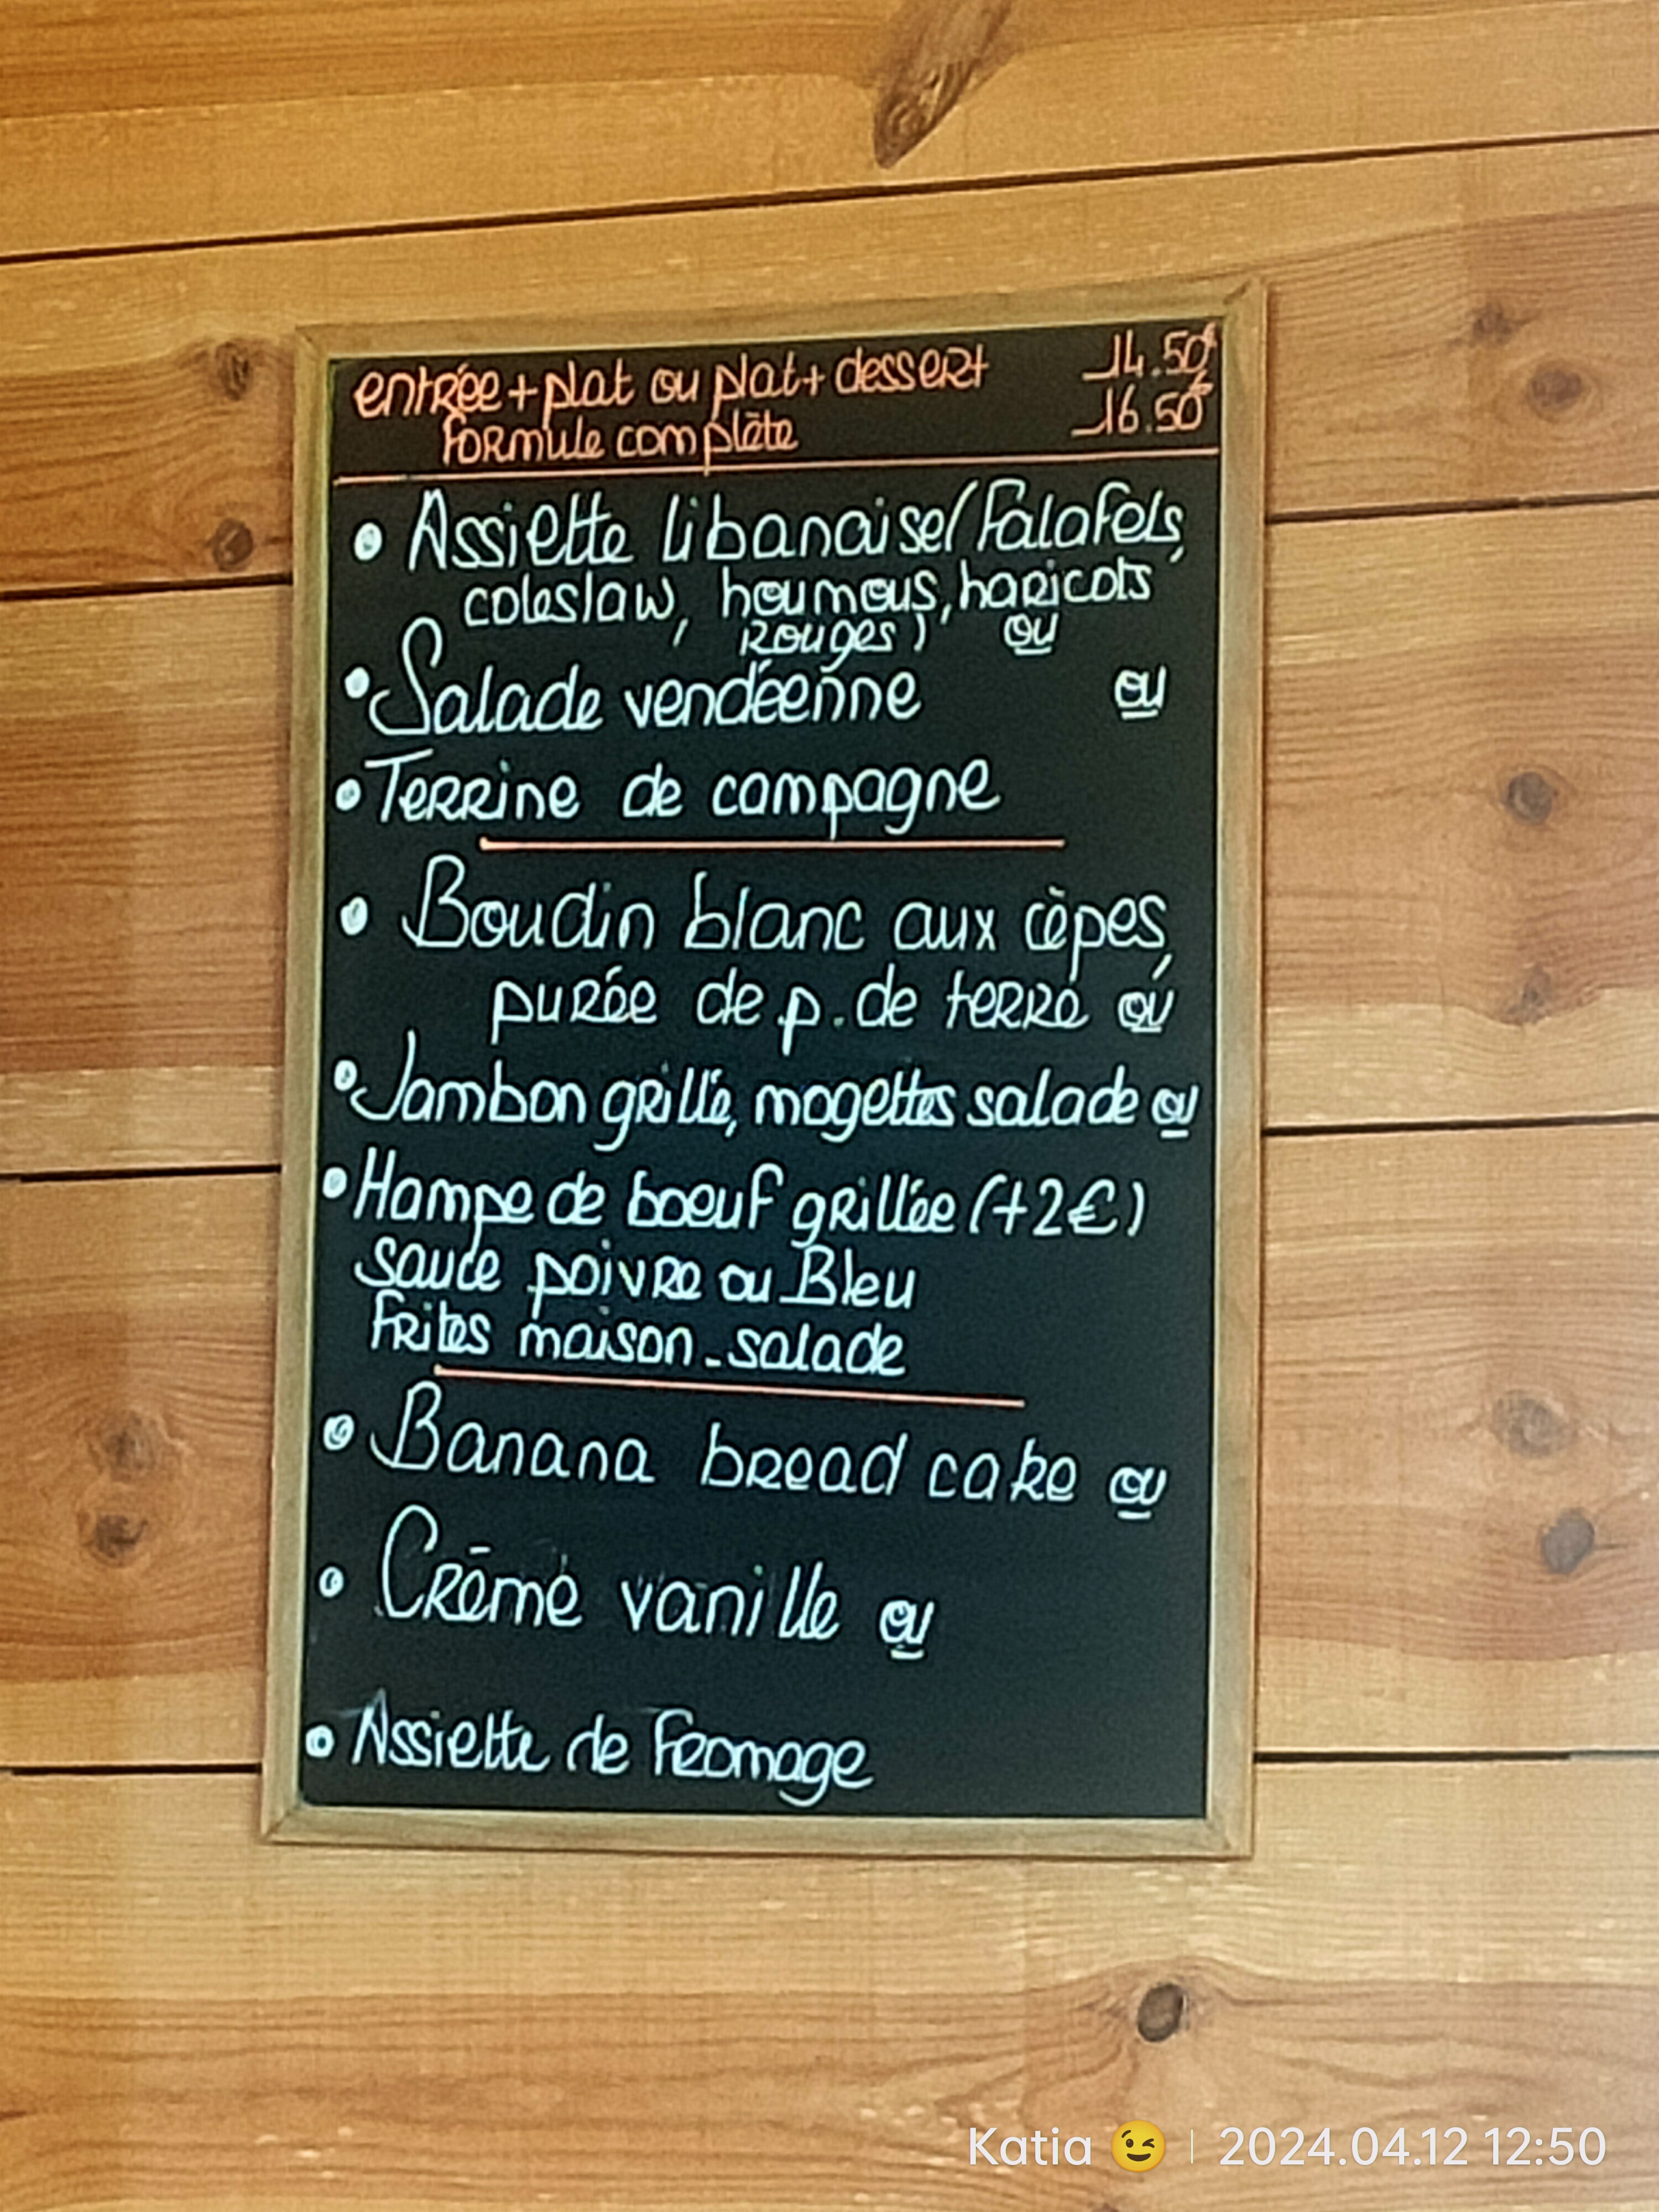 entrée+plat ou plat+dessert 14.50€
formule complète 16.50€
• Assiette libanaise (Falafels,
coleslaw, houmous, haricots
rouges) ou
• Salade vendéenne ou
• Terrine de campagne
• Boudin blanc aux cèpes,
purée de p. de terre ou
• Jambon grillé, mogettes salade ou
• Hampe de boeuf grillée (+2€)
sauce poivre ou Bleu
Frites maison - salade
• Banana bread cake ou
• Crème vanille ou
• Assiette de Fromage
Katia 😉 | 2024.04.12 12:50